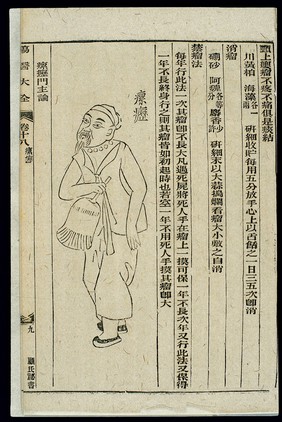 上腫瘤不疼不痛俱是痰結
川黃柏 海藻各一 研細收貯每用五分放手心上以舌餂之一日三五次卽消
消瘤
硼砂 阿魏各等分 麝香少許 研細末以大蒜搗爛看瘤大小敷之自消
禁瘤法
每年行此法一次其瘤卽不長大凡遇死屍將死人手在瘤上一摸可保一年不長次年又行此法又保得
一年不長終身行之則其瘤皆如初起時也若空一年不用死人手摸其瘤卽大
瘰癧
瘰癧門主論
瘍醫大全 卷十八 瘰癧 九 顧氏秘書